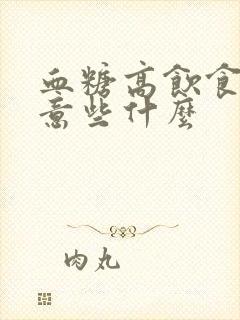 血糖高飲食
意些什麼
肉丸